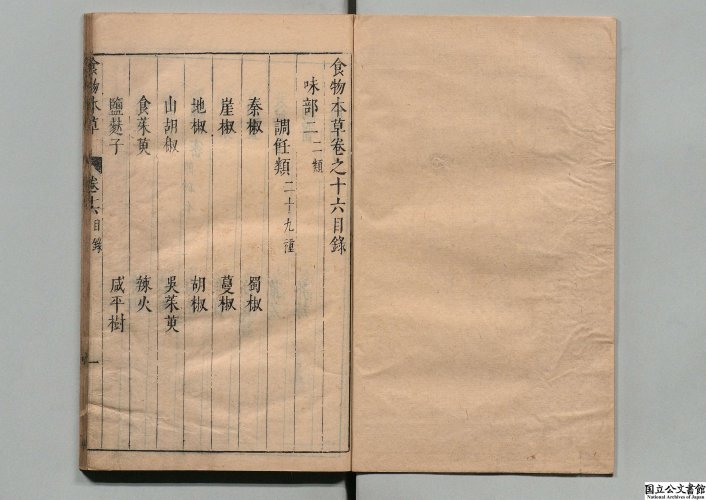 食物本草卷之十六目錄
味部二 二類
調飪類 二十九種
秦椒 蜀椒
崖椒 蔓椒
地椒 胡椒
山胡椒 吳茱萸
食茱萸 辣火
鹽麩子 咸平樹
食物本草 卷十六目錄 一
国立公文書館
National Archives of Japan